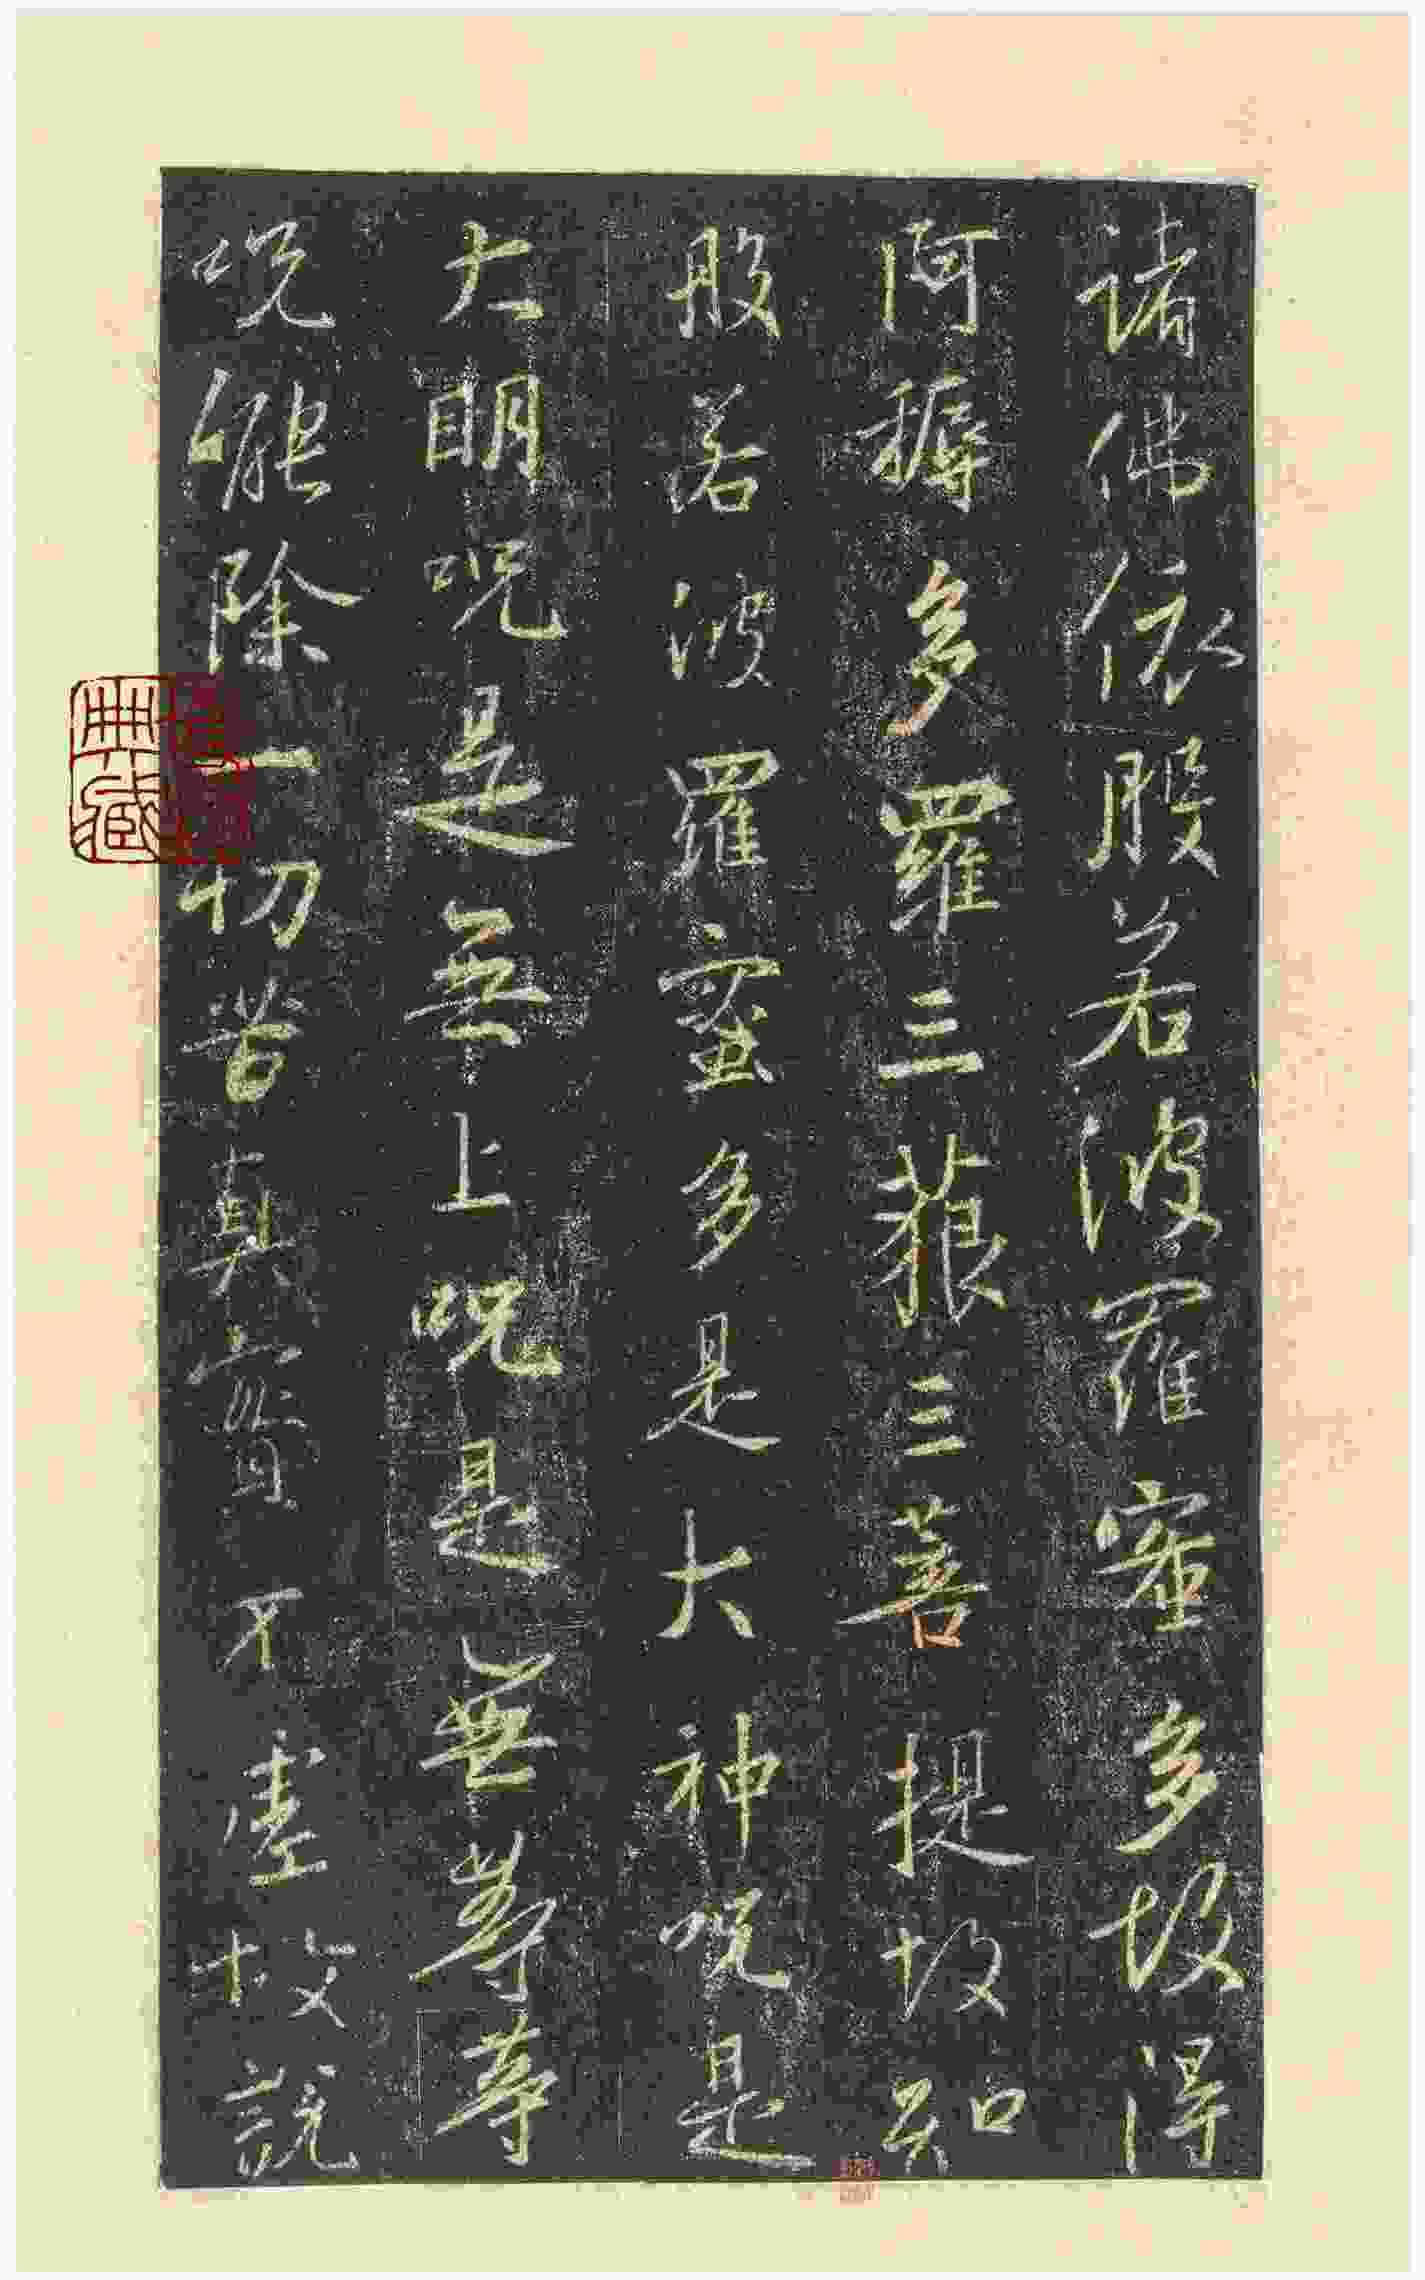 諸佛依般若波羅蜜多故得
阿耨多羅三藐三菩提故知
般若波羅蜜多是大神呪是
大明呪是無上呪是無等等
呪能除一切苦真實不虛故說
典藏